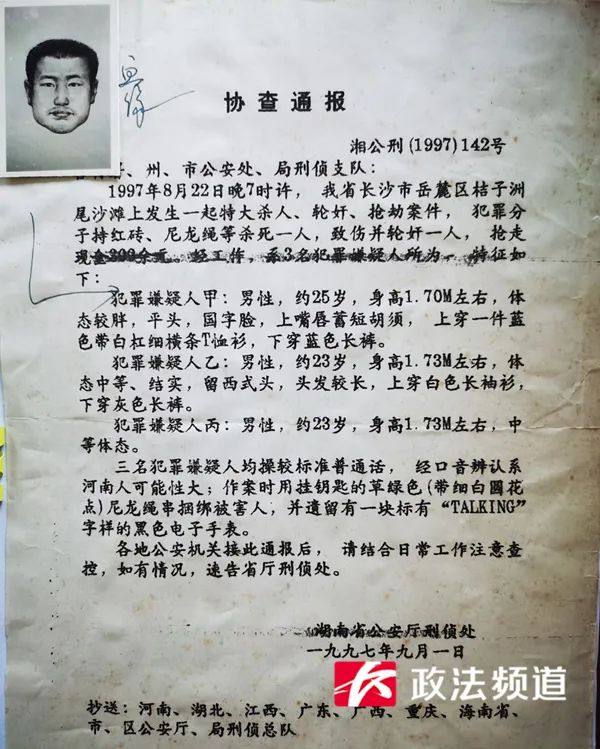 协查通报
湘公刑(1997)142号
州、市公安处、局刑侦支队：
1997年8月22日晚7时许，我省长沙市岳麓区桔子洲
尾沙滩上发生一起特大杀人、轮奸、抢劫案件，犯罪分
子持红砖、尼龙绳等杀死一人，致伤并轮奸一人，抢走
现金300余元。经工作，系3名犯罪嫌疑人所为，特征如
下：
犯罪嫌疑人甲：男性，约25岁，身高1.70M左右，体
态较胖，平头，国字脸，上嘴唇蓄短胡须，上穿一件蓝
色带白杠细横条T恤衫，下穿蓝色长裤。
犯罪嫌疑人乙：男性，约23岁，身高1.73M左右，体
态中等、结实，留西式头，头发较长，上穿白色长袖衫，
下穿灰色长裤。
犯罪嫌疑人丙：男性，约23岁，身高1.73M左右，中
等体态。
三名犯罪嫌疑人均操较标准普通话，经口音辨认系
河南人可能性大；作案时用挂钥匙的草绿色(带细白圆花
点)尼龙绳串捆绑被害人，并遗留有一块标有“TALKING”
字样的黑色电子手表。
各地公安机关接此通报后，请结合日常工作注意查
控，如有情况，速告省厅刑侦处。
湖南省公安厅刑侦处
一九九七年九月一日
政法频道
抄送：河南、湖北、江西、广东、广西、重庆、海南省、
市、区公安厅、局刑侦总队